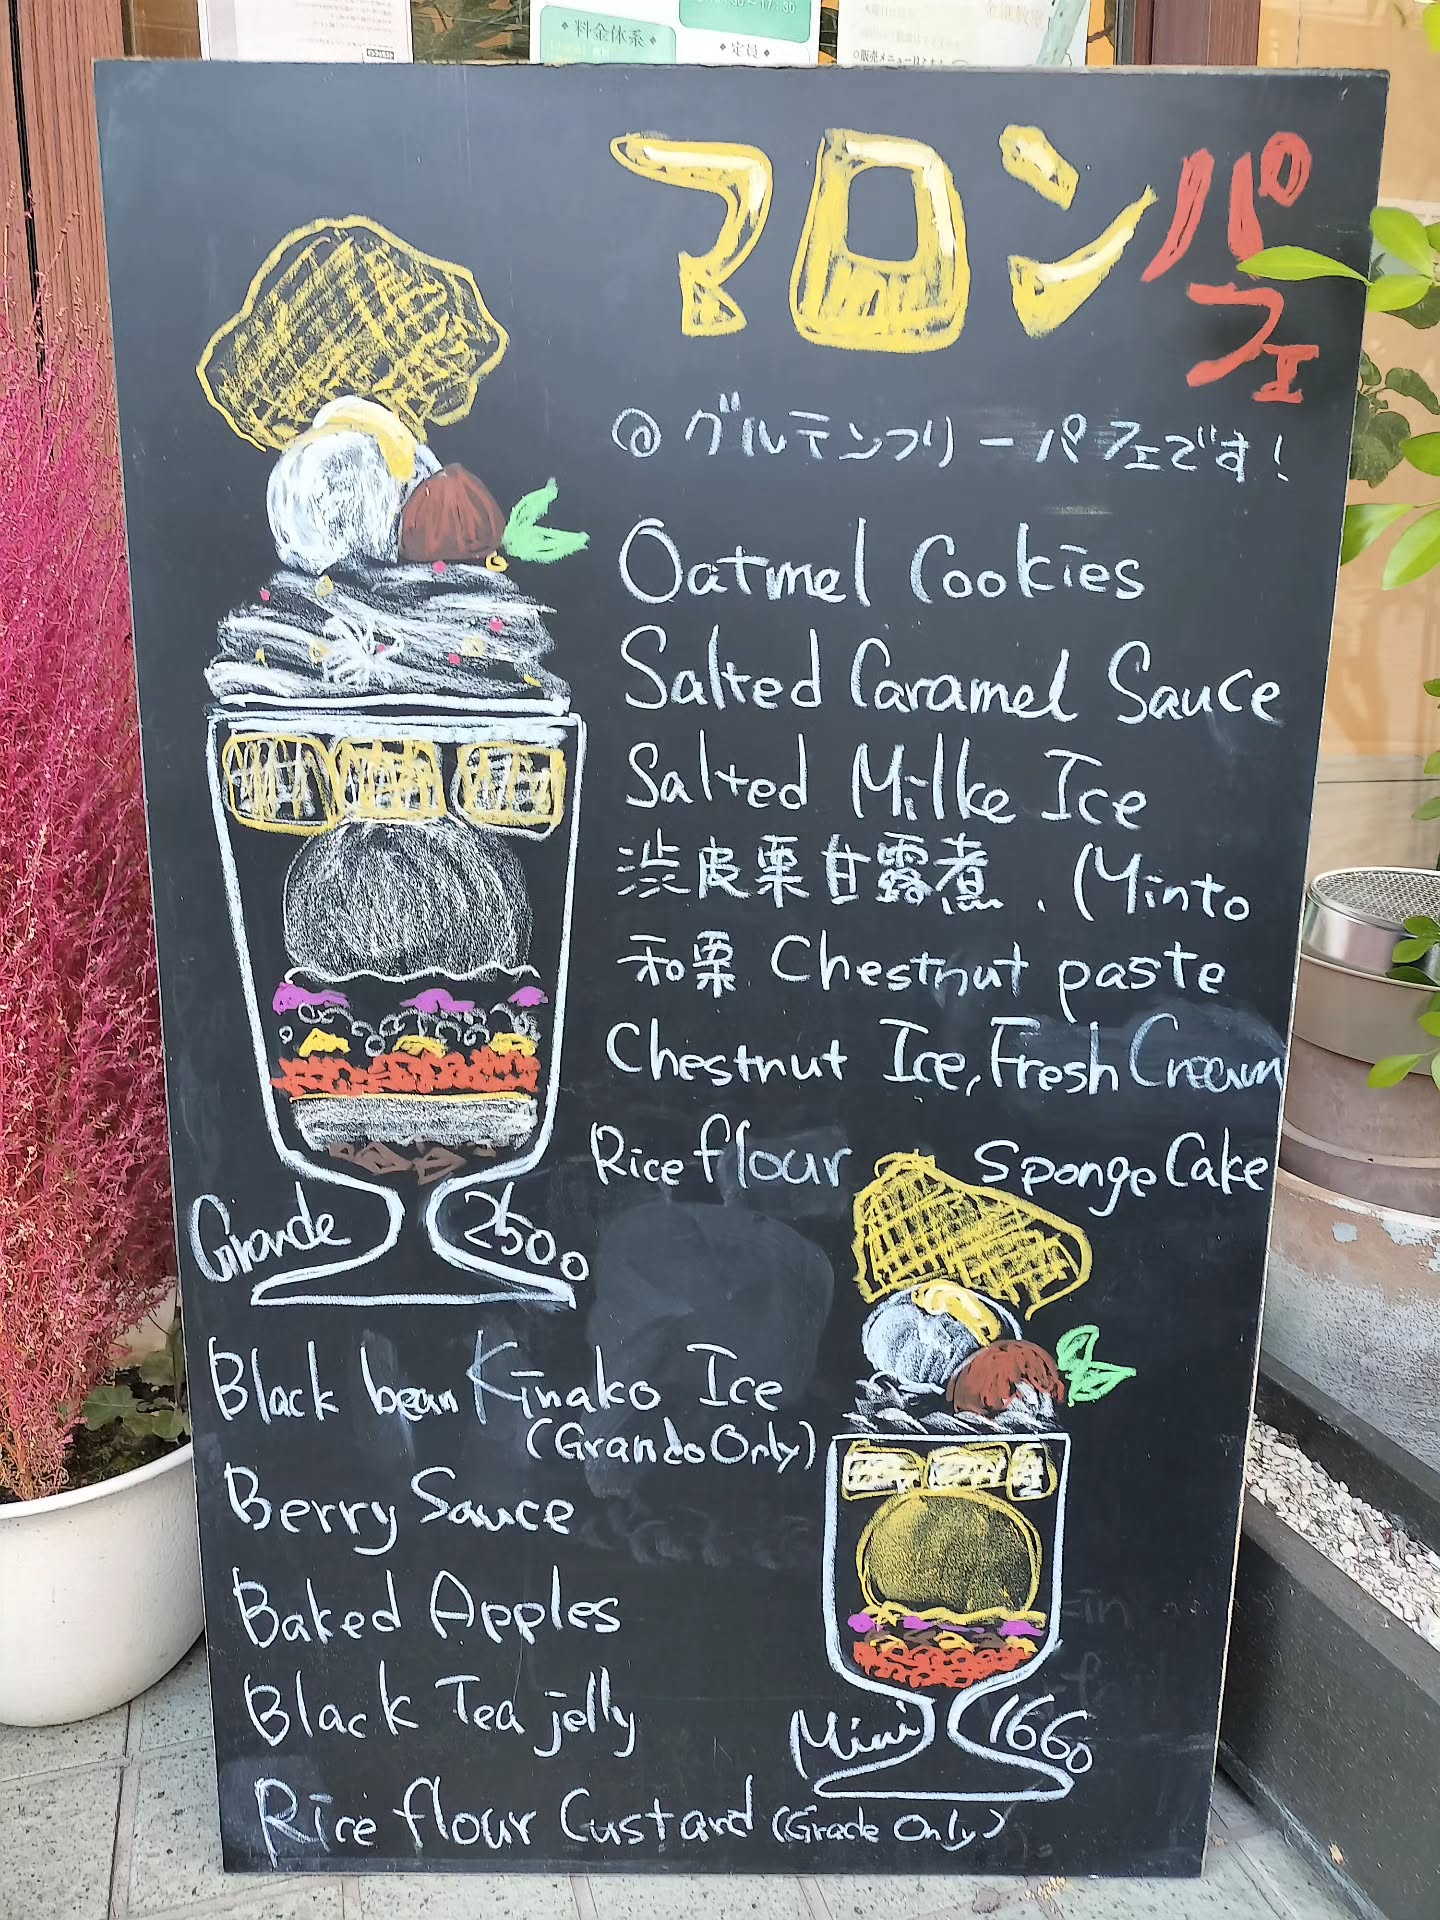 料金体系
定員
マロンパフェ
◎グルテンフリーパフェです!
Oatmel Cookies
Salted Caramel Sauce
Salted Milke Ice
渋皮栗甘露煮. (Minto
和栗 Chestnut paste
Chestnut Ice, Fresh Cream
Rice flour Sponge Cake
Grande 2500
Black bean Kinako Ice
(Grande Only)
Berry Sauce
Baked Apples
Black Tea jelly
Mini 1660
Rice flour Custard (Grade Only)